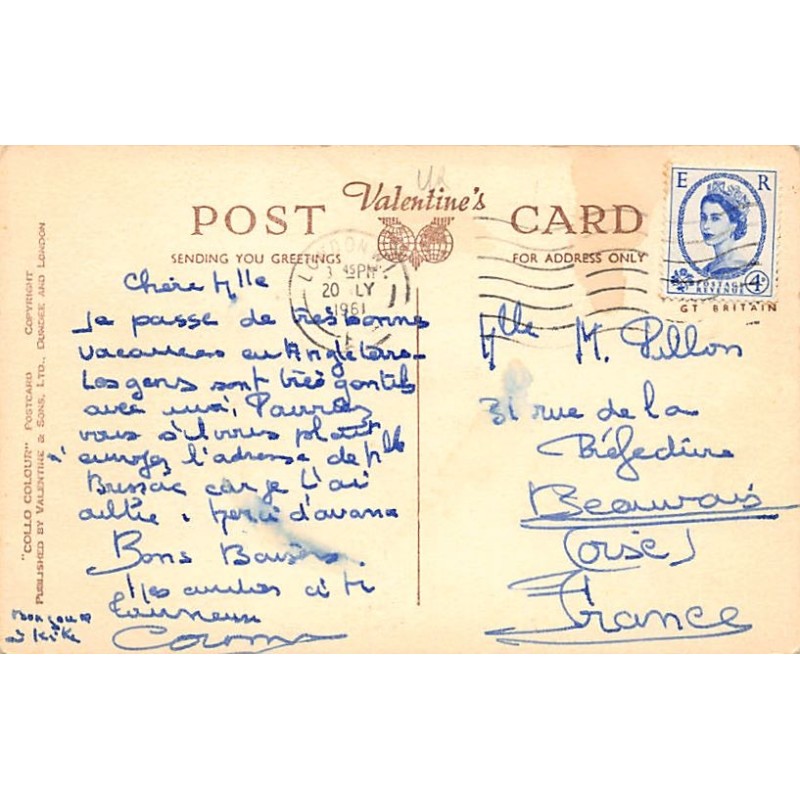 Valentine's
POST CARD
SENDING YOU GREETINGS
FOR ADDRESS ONLY
E R
POSTAGE
REVENUE
4D
GT BRITAIN
LONDON
3 45PM
20 LY
1961
"COLLO COLOUR" POSTCARD COPYRIGHT
PUBLISHED BY VALENTINE & SONS, LTD., DUNDEE AND LONDON
Chère Mlle
Je passe de très bonnes
vacances en Angleterre
Les gens sont très gentils
avec moi. Pourriez
vous s'il vous plait
envoyez l'adresse de Mlle
Bussac car je l'ai
oublié. Merci d'avance
Bons Baisers.
Mes amitiés à Mr
Bonjour
à Kiki
Mlle M. Pillon
31 rue de la
Préfecture
Beauvais
(Oise)
France